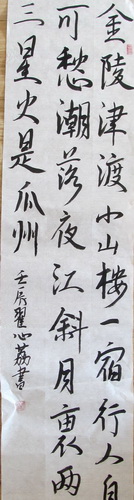 金陵津渡小山楼一宿行人自
可愁潮落夜江斜月裏两
三星火是瓜州
壬辰翟心荔書